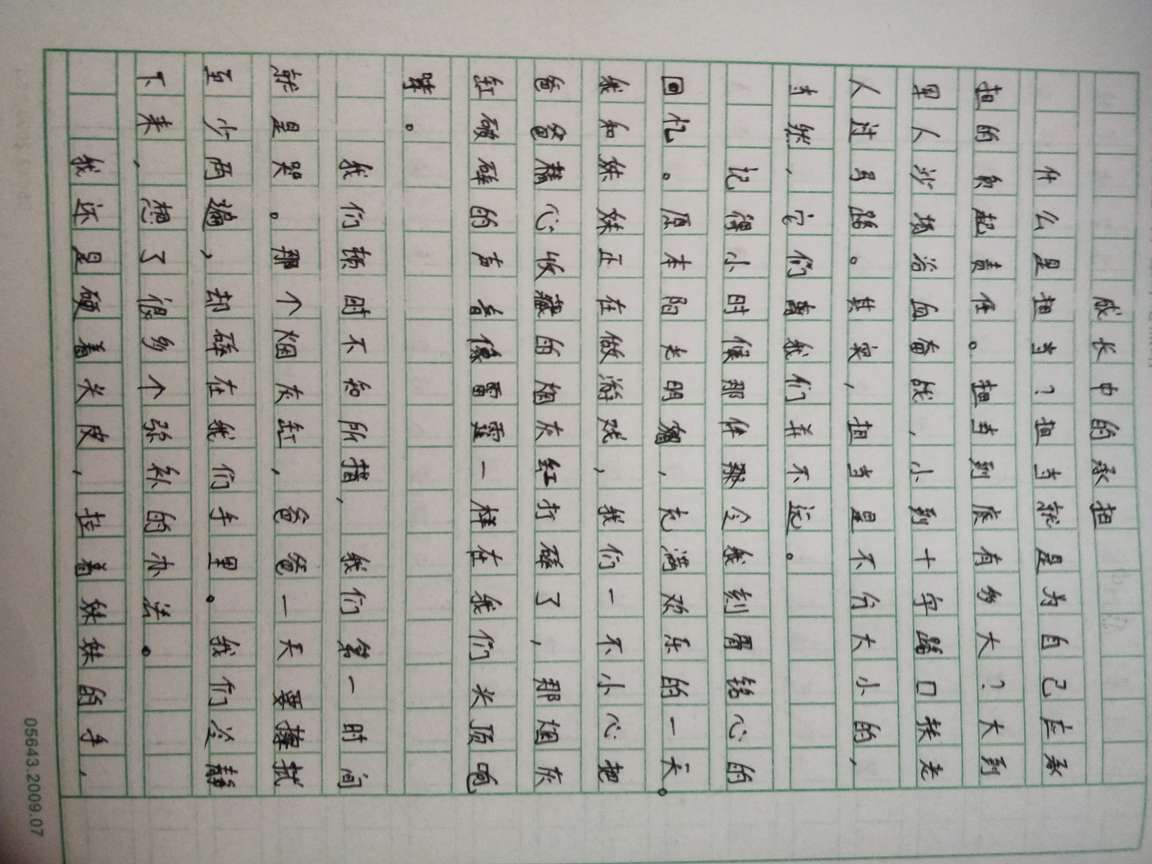 成长中的承担
什么是担当？担当就是为自己应承
担的负起责任。担当到底有多大？大到
军人沙场浴血奋战，小到十字路口扶老
人过马路。其实，担当是不分大小的，
当然，它们离我们并不远。
记得小时候那件那令我刻骨铭心的
回忆。原本阳光明媚，充满欢乐的一天。
我和妹妹正在做游戏，我们一不小心把
爸爸精心收藏的烟灰红打碎了，那烟灰
缸破碎的声音像雷霆一样在我们头顶咆
哮。
我们顿时不知所措，我们第一时间
就是哭。那个烟灰缸，爸爸一天要擦拭
至少两遍，却碎在我们手里。我们冷静
下来，想了很多个弥补的办法。
我还是硬着头皮，拉着妹妹的手，
05643.2009.07